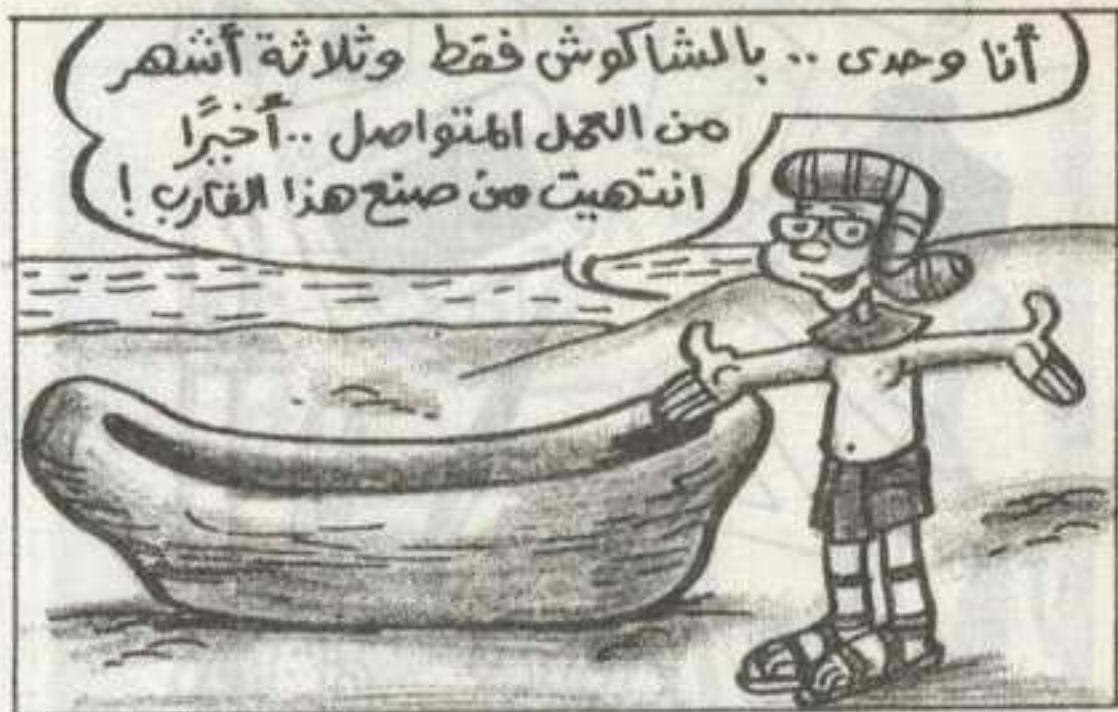 أنا وحدى .. بالشاكوش فقط وثلاثة أشهر
من العمل المتواصل .. أخيرًا
انتهيت من صنع هذا القارب !